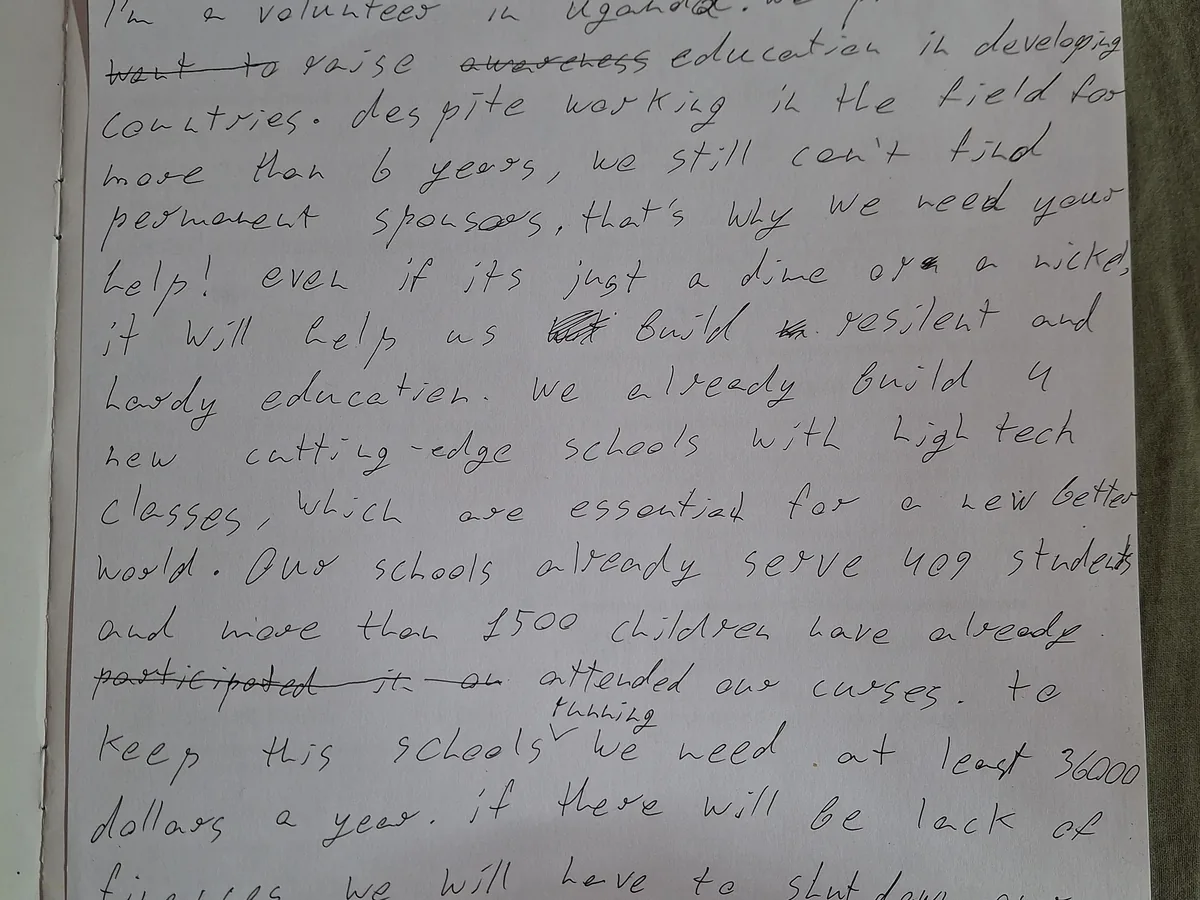 I'm a volunteer in Uganda. we
want to raise awareness education in developing
countries. despite working in the field for
more than 6 years, we still can't find
permanent sponsors, that's why we need your
help! even if its just a dime or a nickel,
it will help us build resilent and
hardy education. We already build 4
new cutting-edge schools with high tech
classes, which are essential for a new better
world. Our schools already serve 409 students
and more than 1500 children have already
participated in ou attended our curses. to
running
keep this schools we need at least 36000
dollars a year. if there will be lack of
finances we will have to shut down our